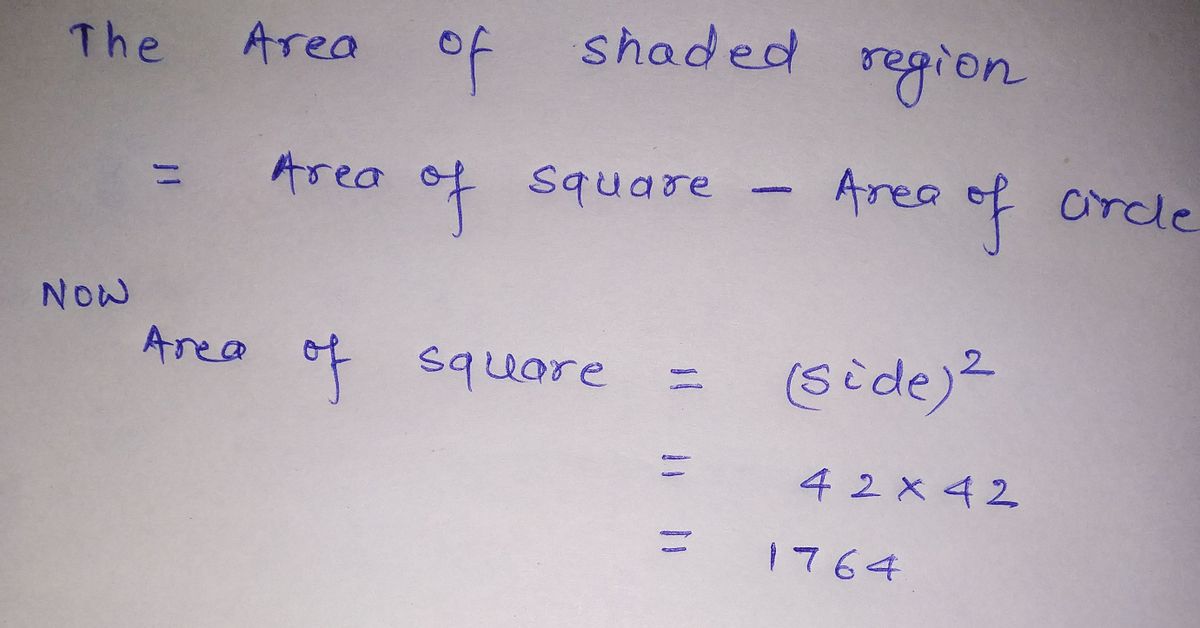 The Area of shaded region
= Area of square - Area of circle
NOW
Area of square = (side)²
= 42×42
= 1764